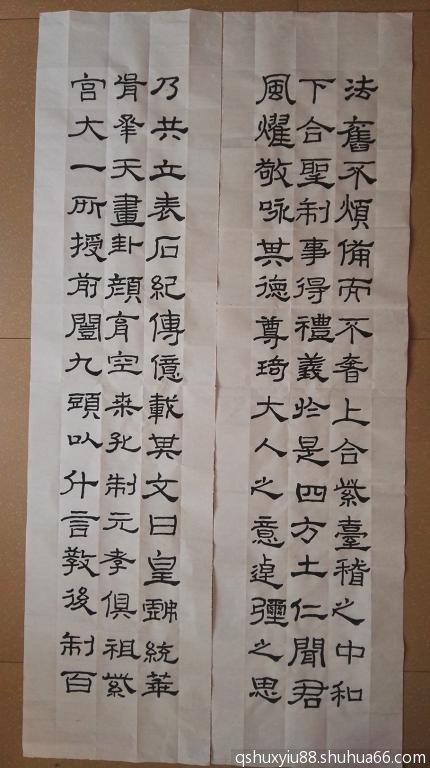 法舊不煩備而不奢上合紫臺稽之中和
下合聖制事得禮義於是四方土仁聞君
風燿敬咏其德尊琦大人之意逴彌之思
乃共立表石紀傳億載其文曰皇戲統華
胥承天畫卦顏育空桒孔制元孝俱祖紫
宮大一所授前闓九頭以什言教後制百
qshuxyiu88.shuhua66.com